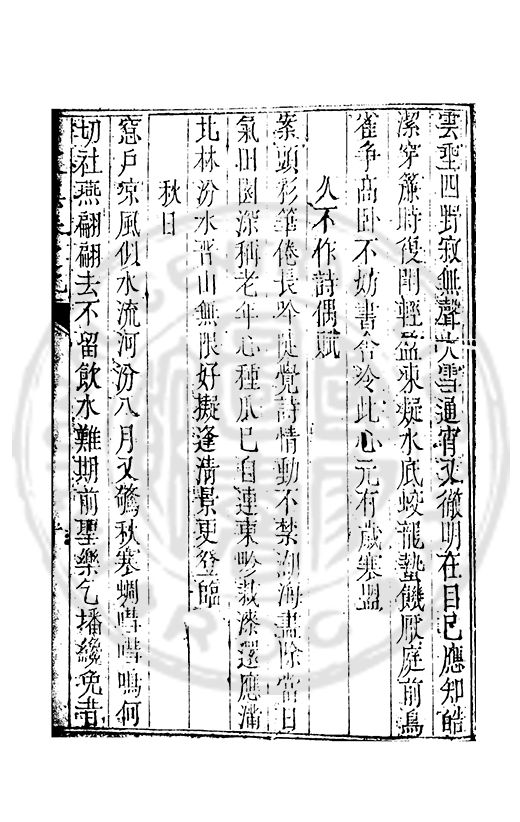 雲垂四野寂無聲大雪通宵又徹明在目已應知皓
潔穿簾時復鬭輕盈凍凝水底蛟龍蟄饑厭庭前鳥
雀爭高臥不妨書舍冷此心元有歲寒盟
久不作詩偶賦
案頭彩筆倦長吟陡覺詩情動不禁湖海盡除當日
氣田園深稱老年心種瓜已自連東畛栽漆還應滿
北林汾水晉山無限好擬逢清景更登臨
秋日
窓戶凉風似水流河汾八月又驚秋寒蜩嘒嘒鳴何
切社燕翩翩去不留飲水難期前聖樂乞墦纔免昔